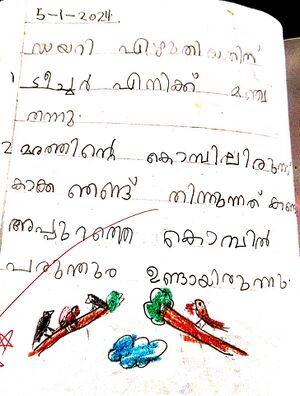 5-1-2024.
ഡയറി എഴുതിയതിന്
1 ടീച്ചർ എനിക്ക് മഞ്ച്
തന്നു.
2 മരത്തിന്റെ കൊമ്പിലിരുന്ന്
കാക്ക ഞണ്ട് തിന്നുന്നത് കണ്ടു
അപ്പുറത്തെ കൊമ്പിൽ
പരുന്തും ഉണ്ടായിരുന്നു.